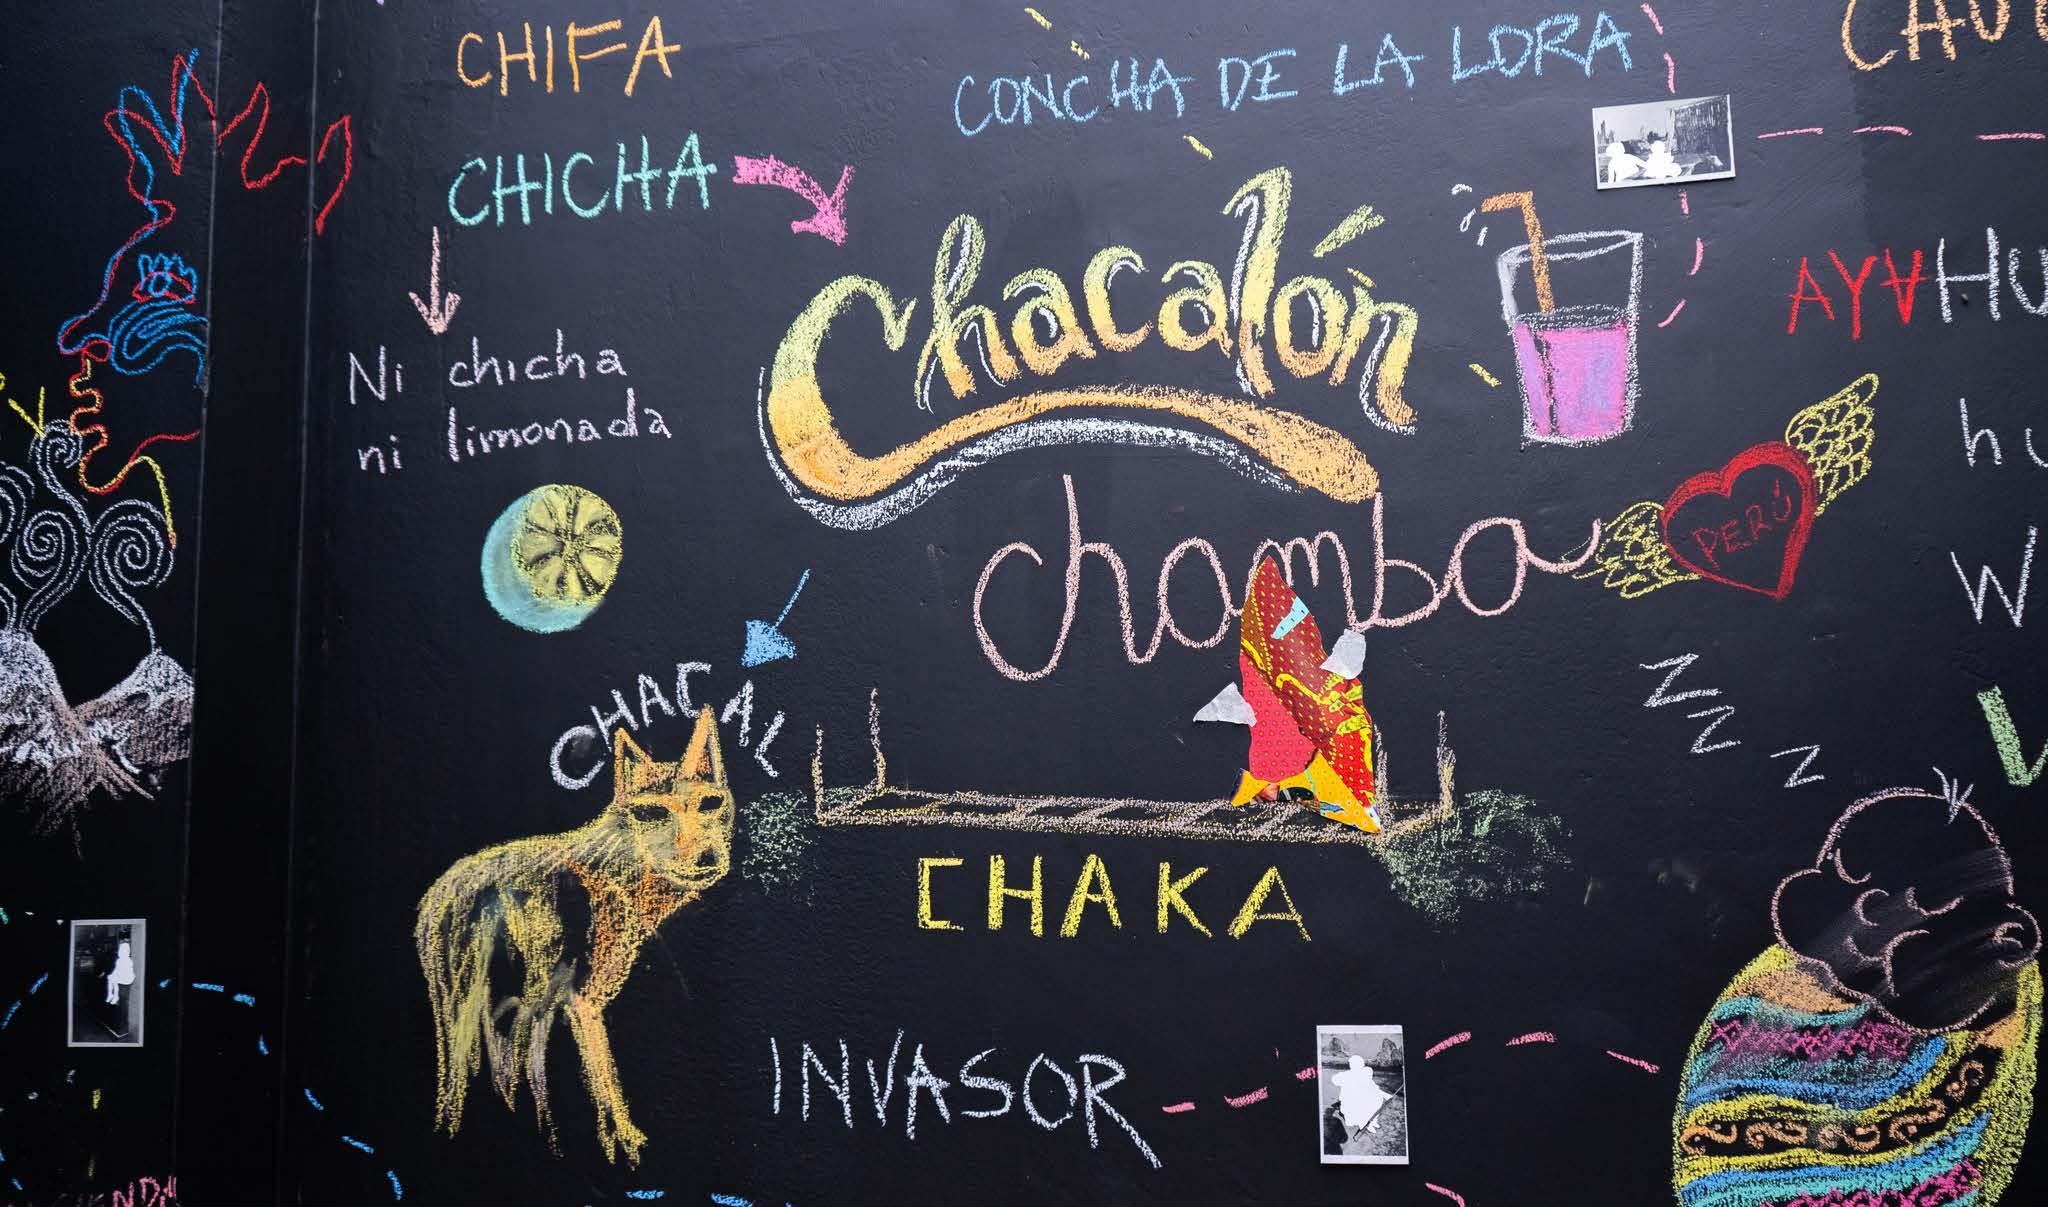 CHIFA
CONCHA DE LA LORA
CHICHA
Chacalón
Ni chicha
ni limonada
chamba
PERÚ
CHACAL
zzz
CHAKA
INVASOR